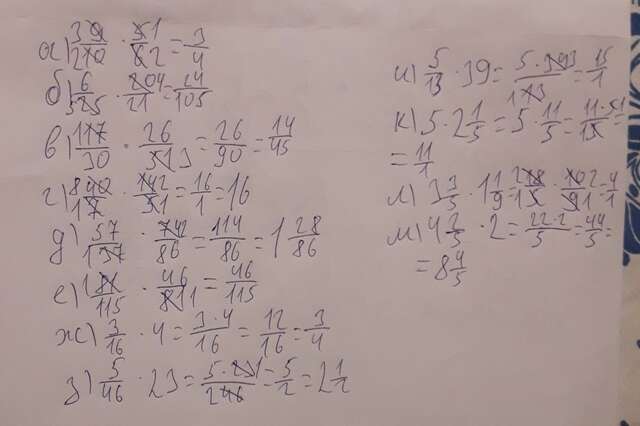 а) 9/10 · 5/6 = 3/4
б) 6/525 · 20/21 = 24/105
в) 117/30 · 26/51 = 26/90 = 14/45
г) 840/17 · 142/51 = 16/1 = 16
д) 57/137 · 742/86 = 114/86 = 1 28/86
е) 81/115 · 46/81 = 46/115
ж) 3/16 · 4 = 3·4/16 = 12/16 = 3/4
з) 5/46 · 23 = 5·23/46 = 5/2 = 2 1/2
и) 5/13 · 39 = 5·39/13 = 15/1
к) 5 · 2 1/5 = 5 · 11/5 = 11·5/5 =
= 11/1
л) 3 3/5 · 1 1/9 = 18/5 · 10/9 = 4/1
м) 4 2/5 · 2 = 22·2/5 = 44/5 =
= 8 4/5